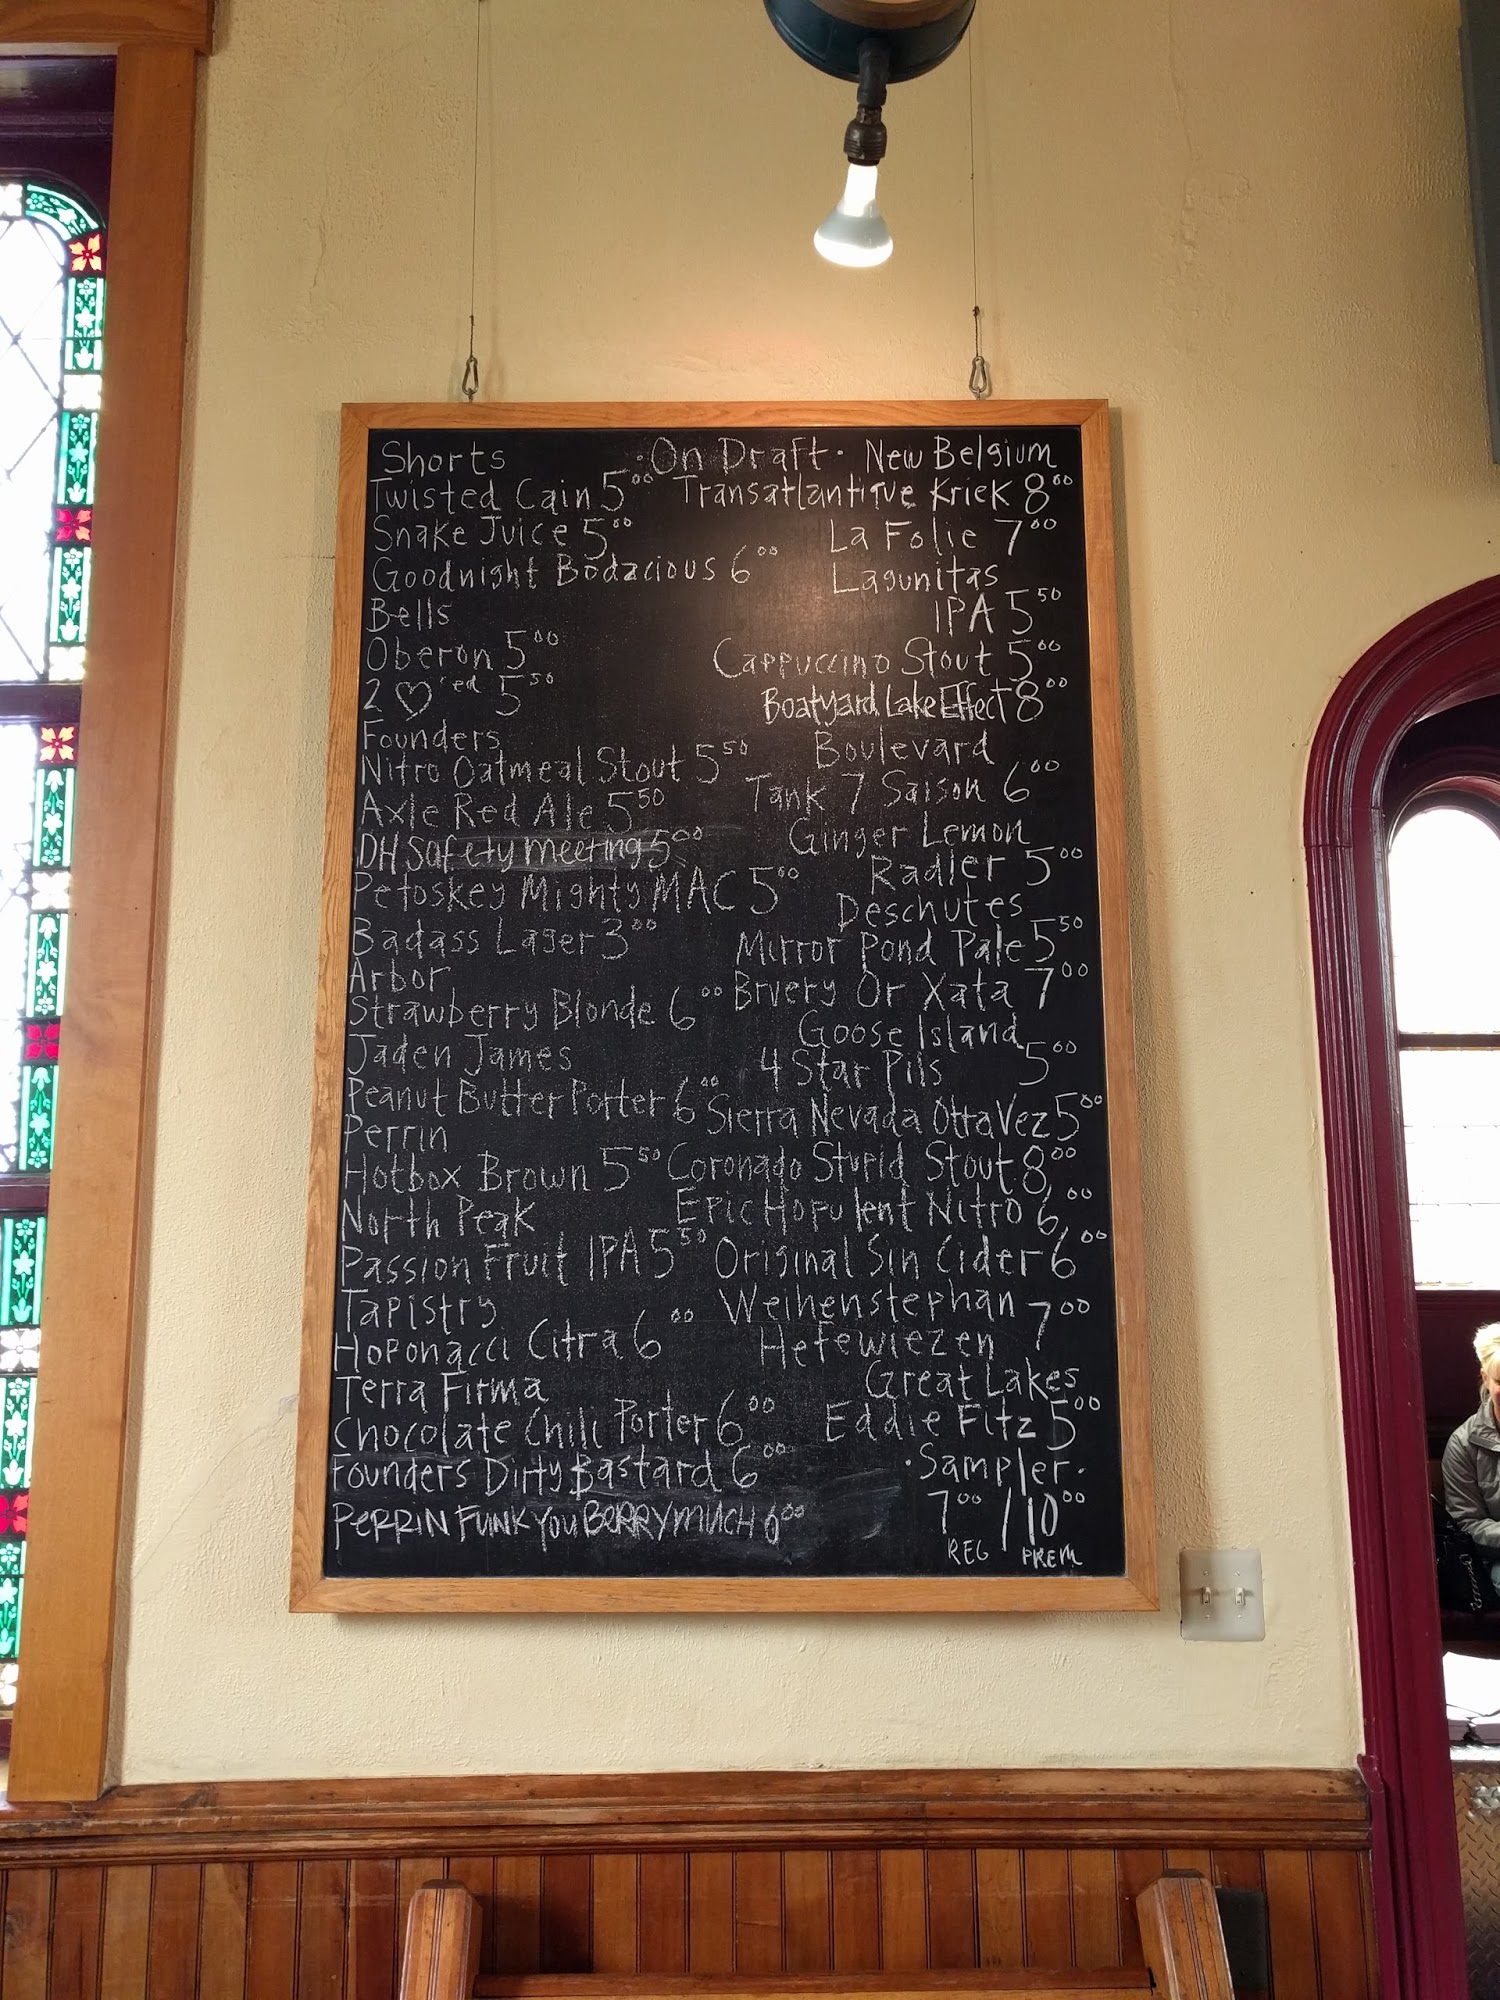 Shorts
Twisted Cain 5⁰⁰
Snake Juice 5⁰⁰
Goodnight Bodacious 6⁰⁰
Bells
Oberon 5⁰⁰
2 ♡'ed 5⁵⁰
Founders
Nitro Oatmeal Stout 5⁵⁰
Axle Red Ale 5⁵⁰
DH Safety meeting 5⁰⁰
Petoskey Mighty MAC 5⁰⁰
Badass Lager 3⁰⁰
Arbor
Strawberry Blonde 6⁰⁰
Jaden James
Peanut Butter Porter 6⁰⁰
Perrin
Hotbox Brown 5⁵⁰
North Peak
Passion Fruit IPA 5⁵⁰
Tapistry
Hoponacci Citra 6⁰⁰
Terra Firma
Chocolate Chili Porter 6⁰⁰
Founders Dirty Bastard 6⁰⁰
PERRIN FUNK YOU BERRY MUCH 6⁰⁰
·On Draft·
New Belgium
Transatlantique Kriek 8⁰⁰
La Folie 7⁰⁰
Lagunitas
IPA 5⁵⁰
Cappuccino Stout 5⁰⁰
Boatyard Lake Effect 8⁰⁰
Boulevard
Tank 7 Saison 6⁰⁰
Ginger Lemon
Radler 5⁰⁰
Deschutes
Mirror Pond Pale 5⁵⁰
Brvery Or Xata 7⁰⁰
Goose Island
4 Star Pils 5⁰⁰
Sierra Nevada Otra Vez 5⁰⁰
Coronado Stupid Stout 8⁰⁰
Epic Hopulent Nitro 6⁰⁰
Original Sin Cider 6⁰⁰
Weihenstephan
Hefewiezen 7⁰⁰
Great Lakes
Eddie Fitz 5⁰⁰
·Sampler·
7⁰⁰ / 10⁰⁰
REG PREM